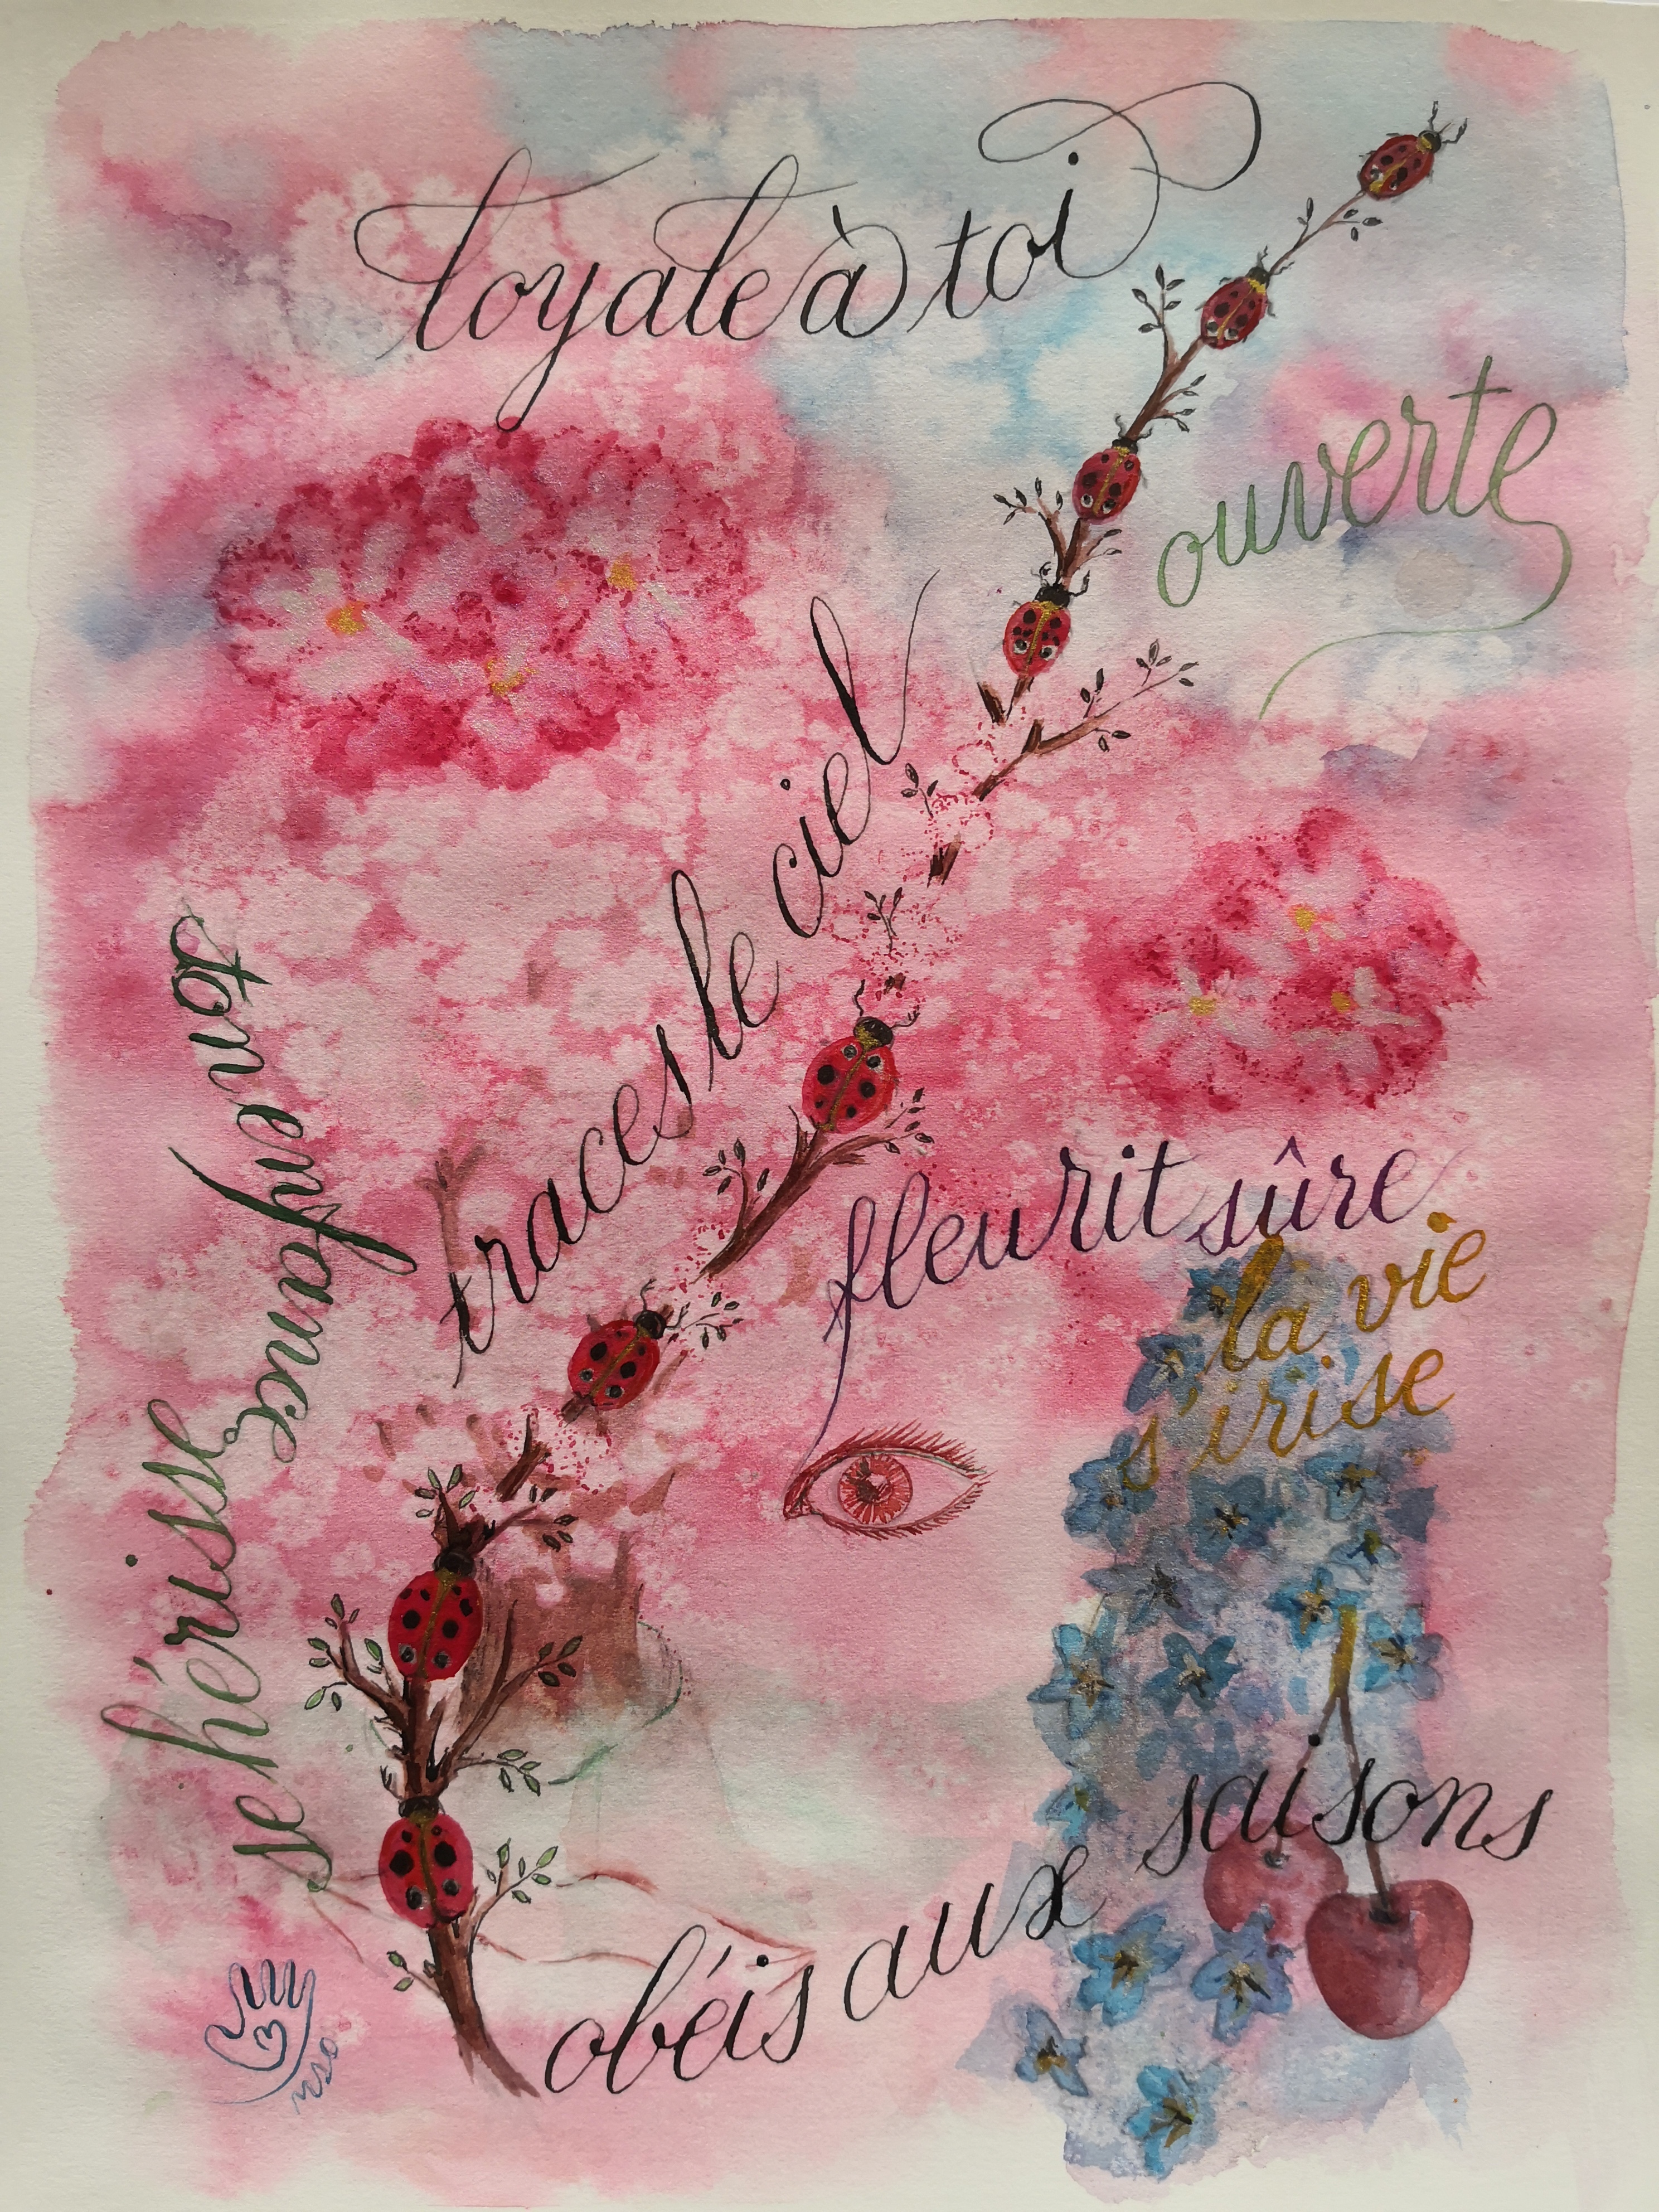 loyale à toi
ouverte
traces le ciel
ton enfance
se hérisse
fleurit sûre
la vie
s'irise
obéis aux saisons